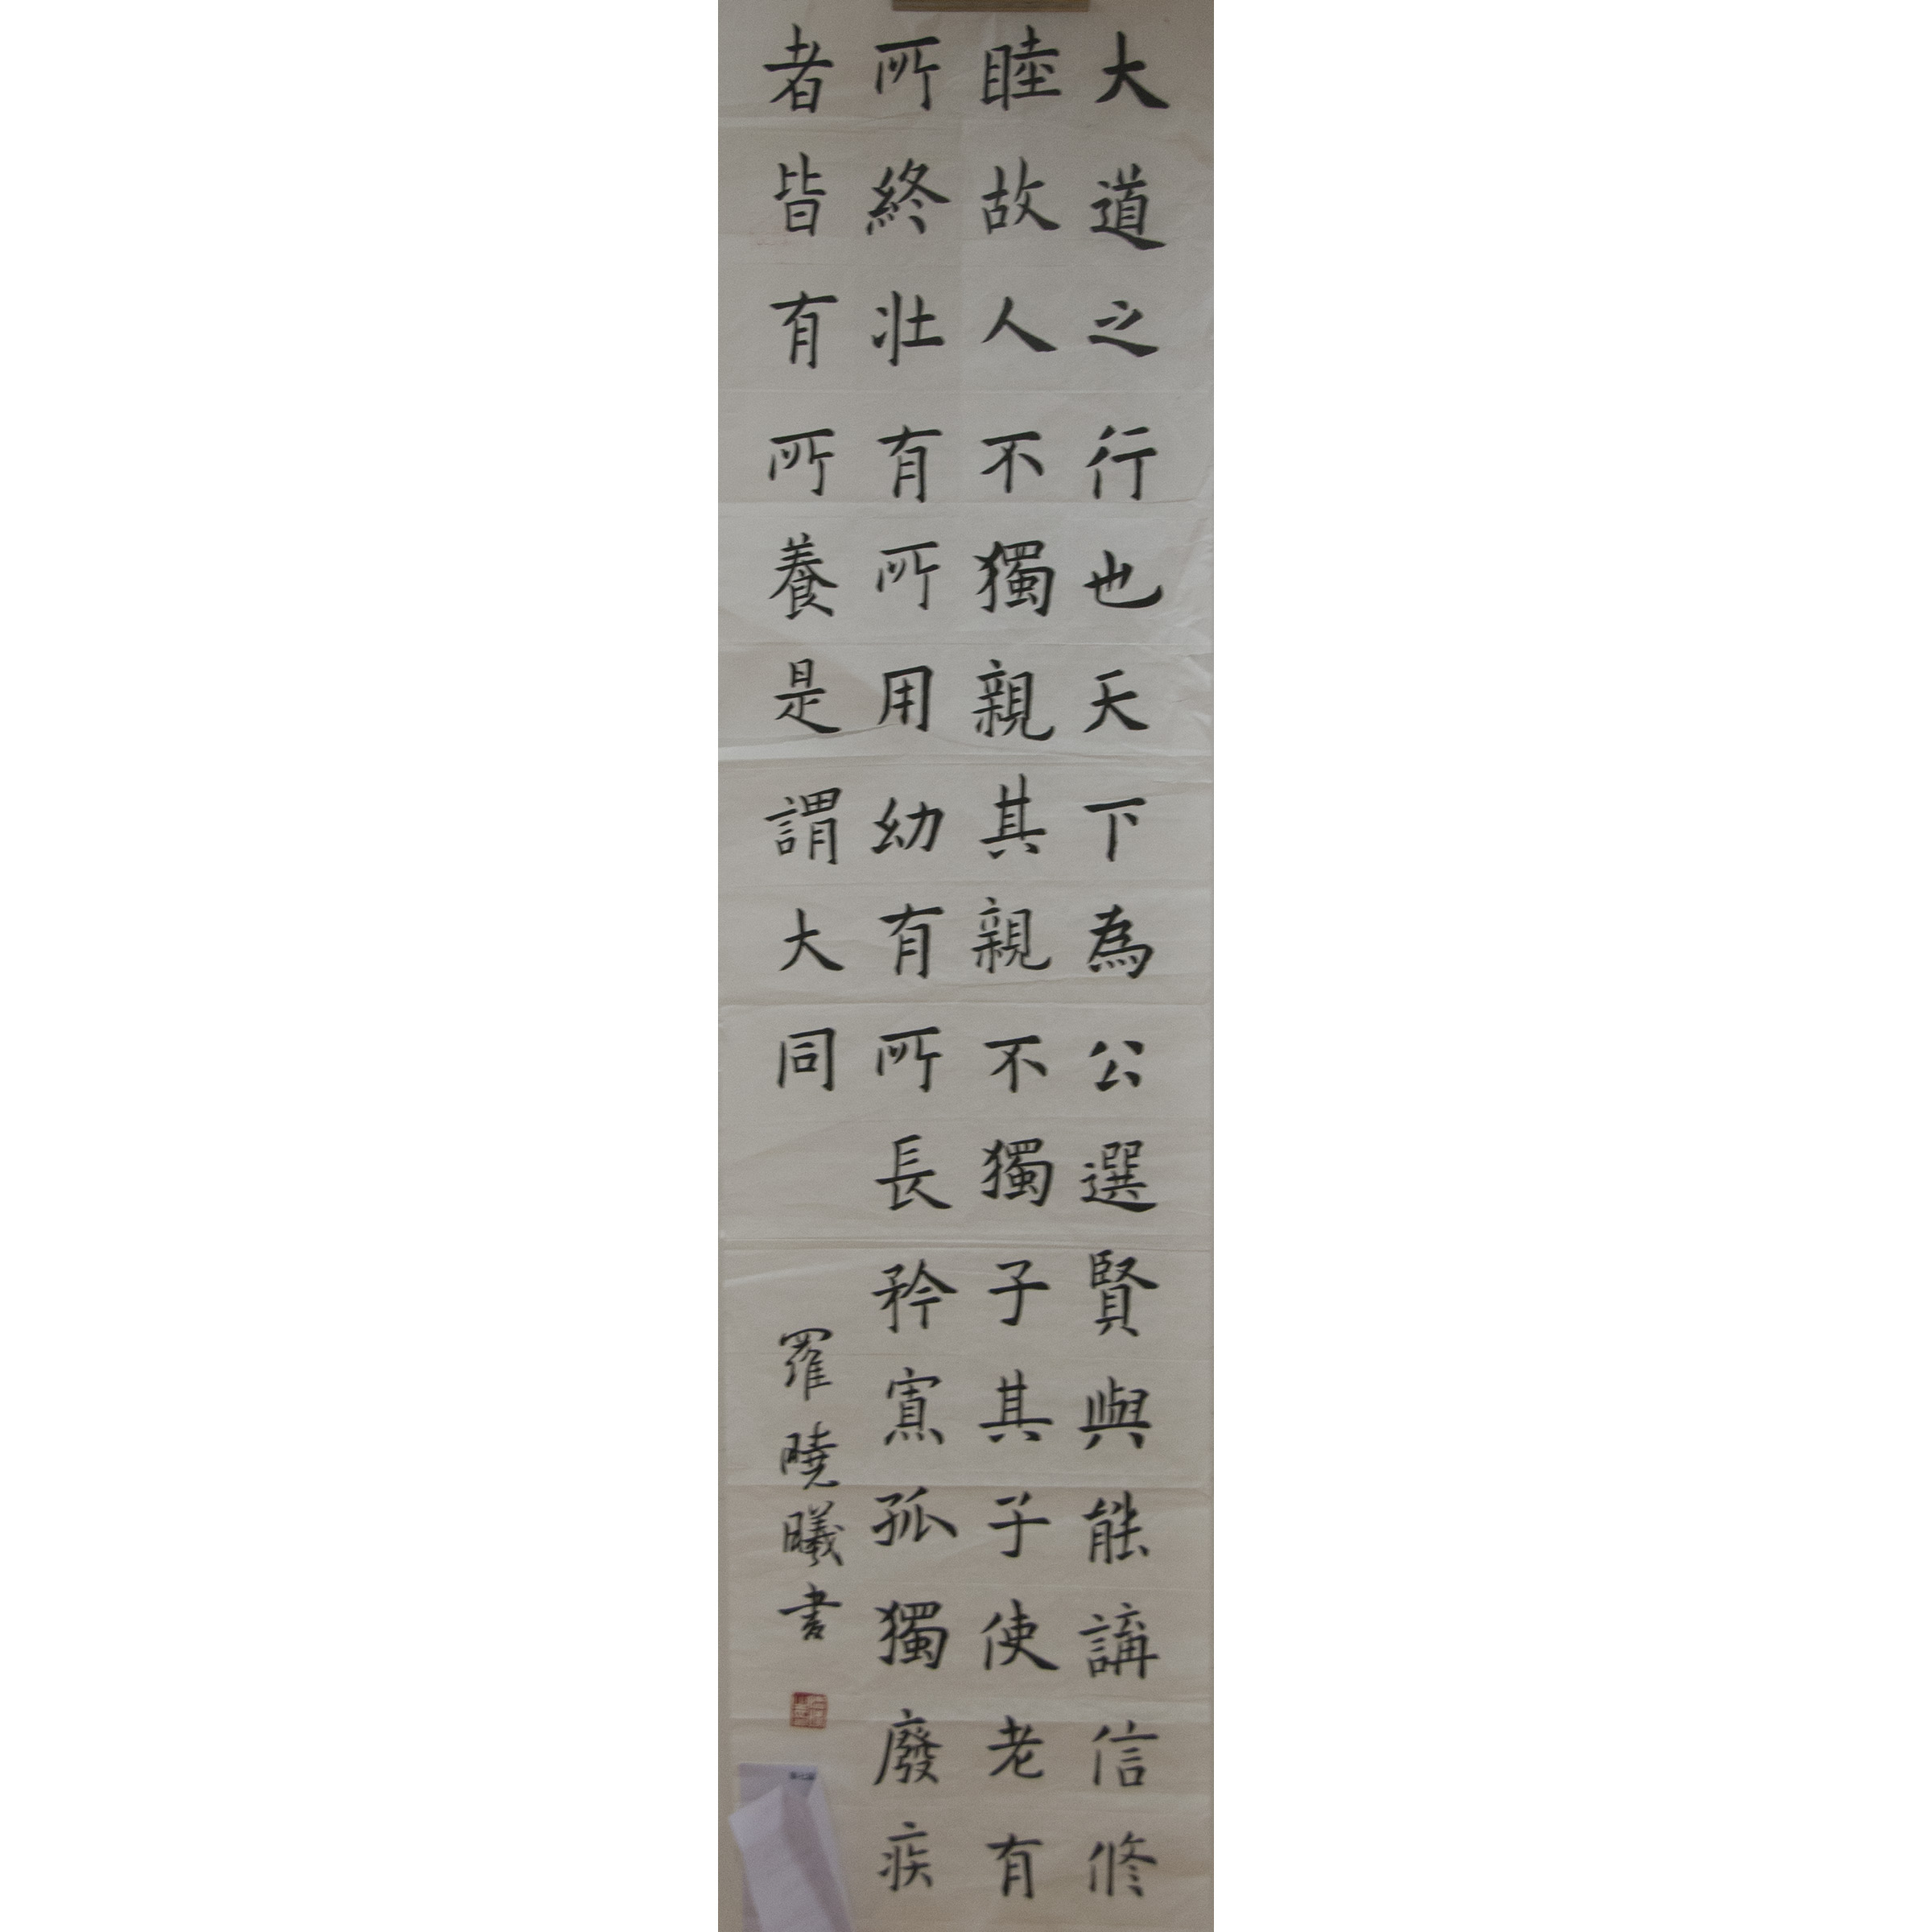 大道之行也天下為公選賢與能講信修
睦故人不獨親其親不獨子其子使老有
所終壯有所用幼有所長矜寡孤獨廢疾
者皆有所養是謂大同
羅曉曦書